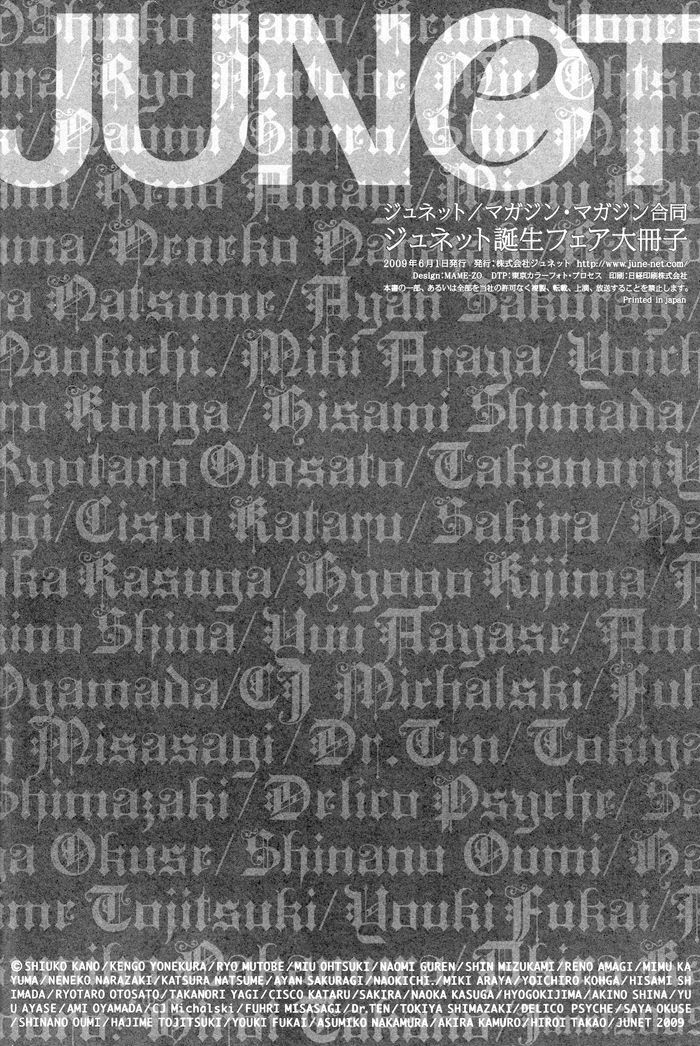 JUNeT
ジュネット／マガジン・マガジン合同
ジュネット誕生フェア大冊子
2009年6月1日発行　発行：株式会社ジュネット　http://www.june-net.com/
Design：MAME-ZO.　DTP：東京カラーフォト・プロセス　印刷：日経印刷株式会社
本書の一部、あるいは全部を当社の許可なく複製、転載、上演、放送することを禁止します。
Printed in japan
Naokichi./Miki Araya/Yoich
ro Kohga/Hisami Shimada/
Ryotaro Otosato/TakanoriY
agi/Cisco Kataru/Sakira/Na
oka Kasuga/Hyogo Kijima/A
kino Shina/Yuu Aayase/Am
Oyamada/CJ Michalski/Fuh
i Misasagi/Dr.Ten/Tokiya
Shimazaki/Delico Psyche/Sa
ya Okuse/Shinano Oumi/Ha
ime Tojitsuki/Youki Fukai/
©SHIUKO KANO/KENGO YONEKURA/RYO MUTOBE/MIU OHTSUKI/NAOMI GUREN/SHIN MIZUKAMI/RENO AMAGI/MIMU KA
YUMA/NENEKO NARAZAKI/KATSURA NATSUME/AYAN SAKURAGI/NAOKICHI./MIKI ARAYA/YOICHIRO KOHGA/HISAMI SH
IMADA/RYOTARO OTOSATO/TAKANORI YAGI/CISCO KATARU/SAKIRA/NAOKA KASUGA/HYOGOKIJIMA/AKINO SHINA/YU
U AYASE/AMI OYAMADA/CJ Michalski/FUHRI MISASAGI/Dr.TEN/TOKIYA SHIMAZAKI/DELICO PSYCHE/SAYA OKUSE
/SHINANO OUMI/HAJIME TOJITSUKI/YOUKI FUKAI/ASUMIKO NAKAMURA/AKIRA KAMURO/HIROI TAKAO/JUNET 2009